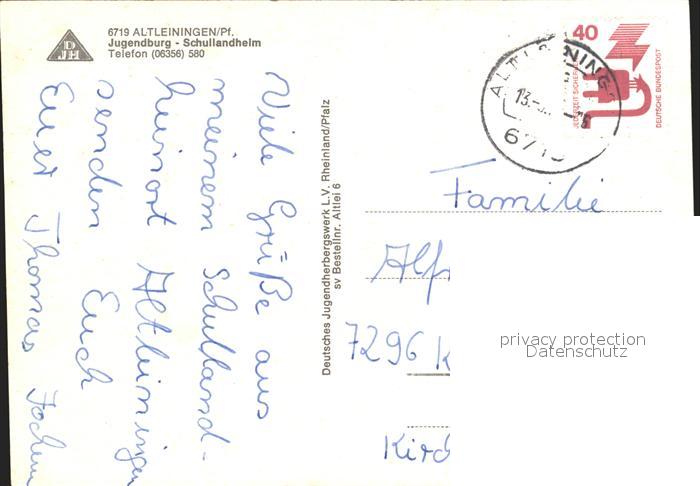 6719 ALTLEININGEN/Pf.
Jugendburg - Schullandheim
Telefon (06356) 580
DJH
Viele Grüße aus
meinem Schulland-
heimort Altleiningen
senden Euch
Euer Thomas Jochen
Deutsches Jugendherbergswerk L.V. Rheinland/Pfalz
sv Bestellnr. Altlei 6
40
JEDERZEIT SICHERHEIT
DEUTSCHE BUNDESPOST
ALTLEINING
13.-
6719
Familie
Alf
7296 K
Kird
privacy protection
Datenschutz